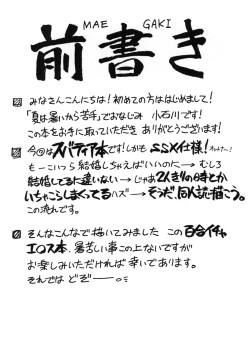 MAE GAKI
前書き
みなさんこんにちは！初めての方ははじめまして！
「夏は暑いから苦手」でおなじみ 小石川です！
この本をお手に取っていただき ありがとうございます！
今回はスパティア本です！しかも SSX仕様！
もーこいつら結婚しちゃえばいいのに→むしろ
結婚してるに違いない→じゃあ2人きりの時とか
いちゃこらしまくってるハズ→そうだ、同人誌描こう。
この流れです。
そんなこんなで描いてみました この百合イチャ
エロス本。暑苦しい事この上ないですが
お楽しみいただければ幸いであります。
それでは どぞー――。